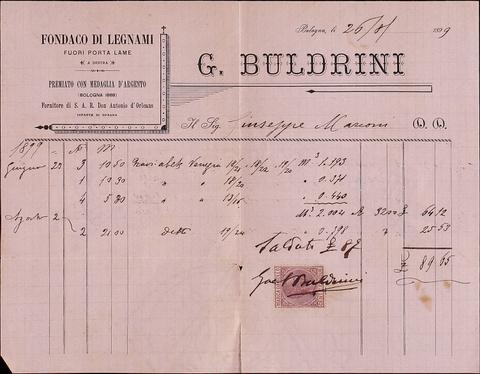 FONDACO DI LEGNAMI
FUORI PORTA LAME
A DESTRA
PREMIATO CON MEDAGLIA D'ARGENTO
(BOLOGNA 1888)
Fornitore di S. A. R. Don Antonio d'Orleans
INFANTE DI SPAGNA
Bologna, li 26/8/ 1899
G. BULDRINI
Il Sig. Giuseppe Marconi
1899 N° M
Giugno 22 3 10.50 Venezia 1.193
1 19.30 " " 18/20 " 0.371
4 5.80 " " " 0.440
M³ 2.004 3200 £ 64 12
Agosto 2
2 21.00 detti 19/24 " 0.798 " 25 53
Saldato £ 87
£ 89 65
Buldrini